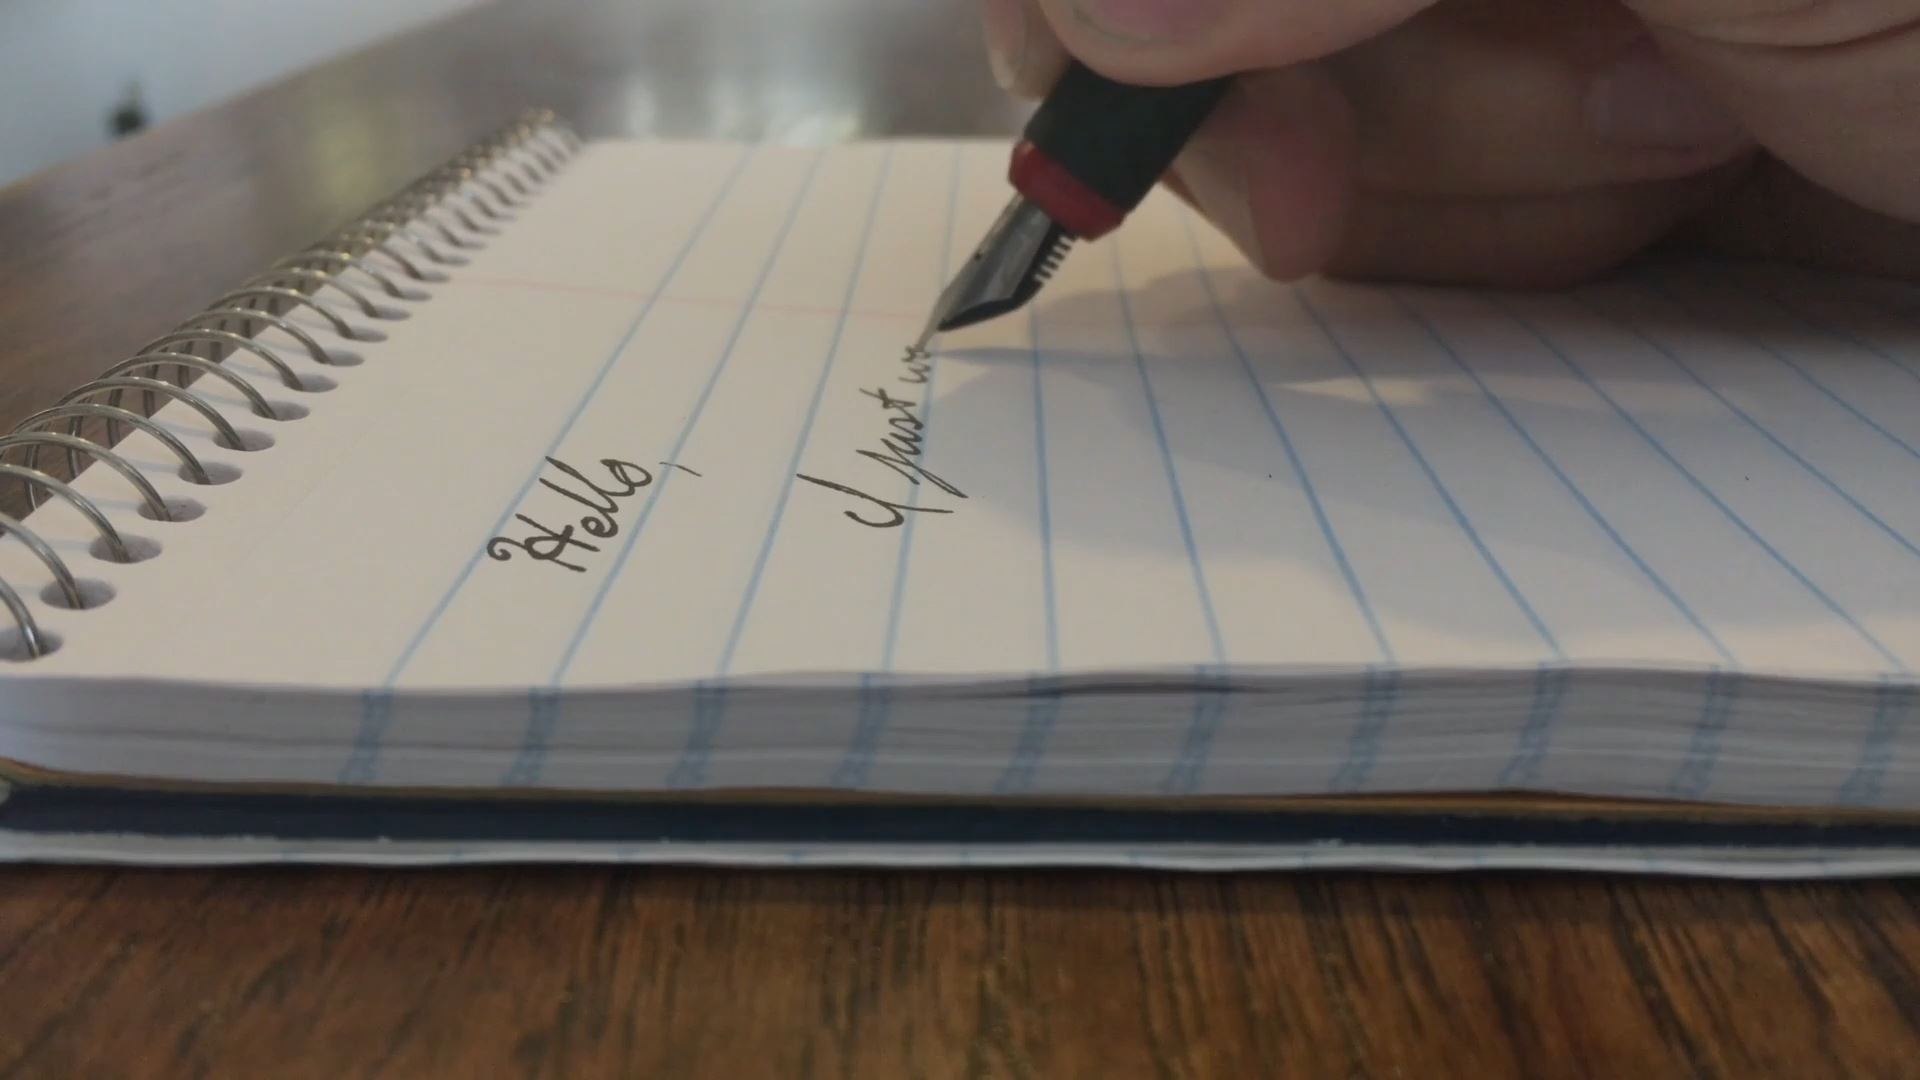 Hello,
I just w